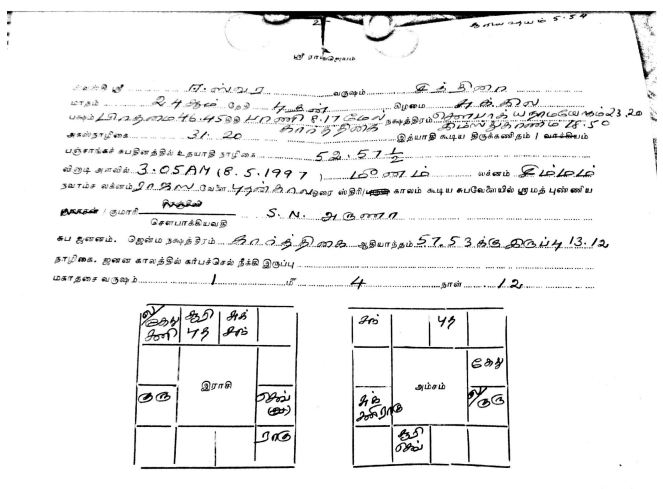 ஸ்ரீ ராமஜெயம்
ஸ்ரீ ஈஸ்வர வருஷம் சித்திரை
மாதம் 24ஆம் தேதி புதன் கிழமை சுக்கில
பக்ஷம் பிரதமை 46.45 பரணி 8.17 மேல் நக்ஷத்திரம் 23.20
கார்த்திகை 18.50
அகஸ்நாழிகை 31.20 இத்யாதி கூடிய திருக்கணிதம் / வாக்கியம்
பஞ்சாங்க சுபதினத்தில் உதயாதி நாழிகை 52.57½
விநாடி அளவில் 3.05AM (8.5.1997) மீனம் லக்னம் சிம்மம்
நவாம்ச லக்னம் வேளை ஓரை ஸ்திரி காலம் கூடிய சுபவேளையில் ஸ்ரீமத் புண்ணிய
/ குமாரி S.N. அருணா
சௌபாக்கியவதி
சுப ஜனனம். ஜென்ம நக்ஷத்திரம் கார்த்திகை ஆதியாந்தம் 57.53க்கு இருப்பு 13.12
நாழிகை. ஜனன காலத்தில் கர்பச்செல் நீக்கி இருப்பு
மகாதசை வருஷம் 1 மீ 4 நாள் 12
ல/ கேது சனி சூரி புத சுக் சந்
இராசி
குரு
செவ்
ராகு
சந் புத
கேது
அம்சம்
சுக் சனி ராகு ல/ குரு
சூரி செவ்